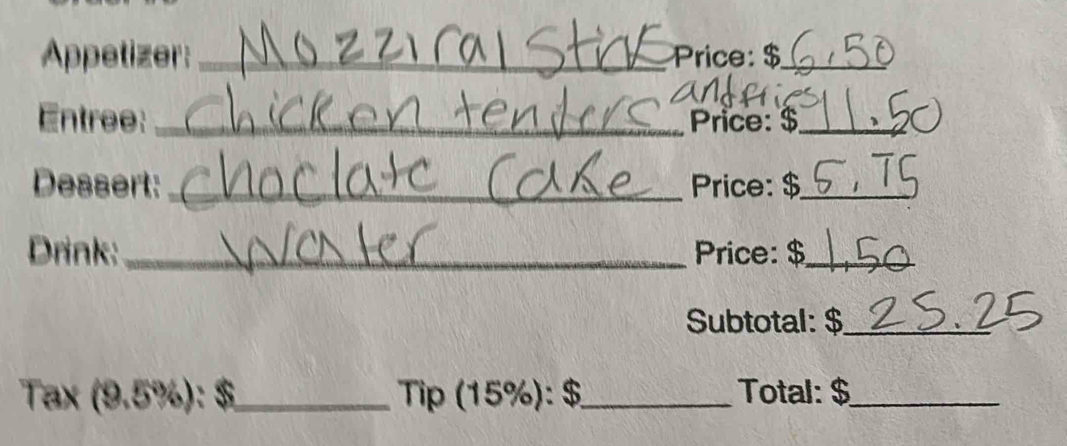 Appetizer: Mozziral Stick Price: $6.50
Entree: chicken tenders and fries Price: $11.50
Dessert: choclate Cake Price: $5.75
Drink: Water Price: $1.50
Subtotal: $25.25
Tax (9.5%): $ Tip (15%): $ Total: $